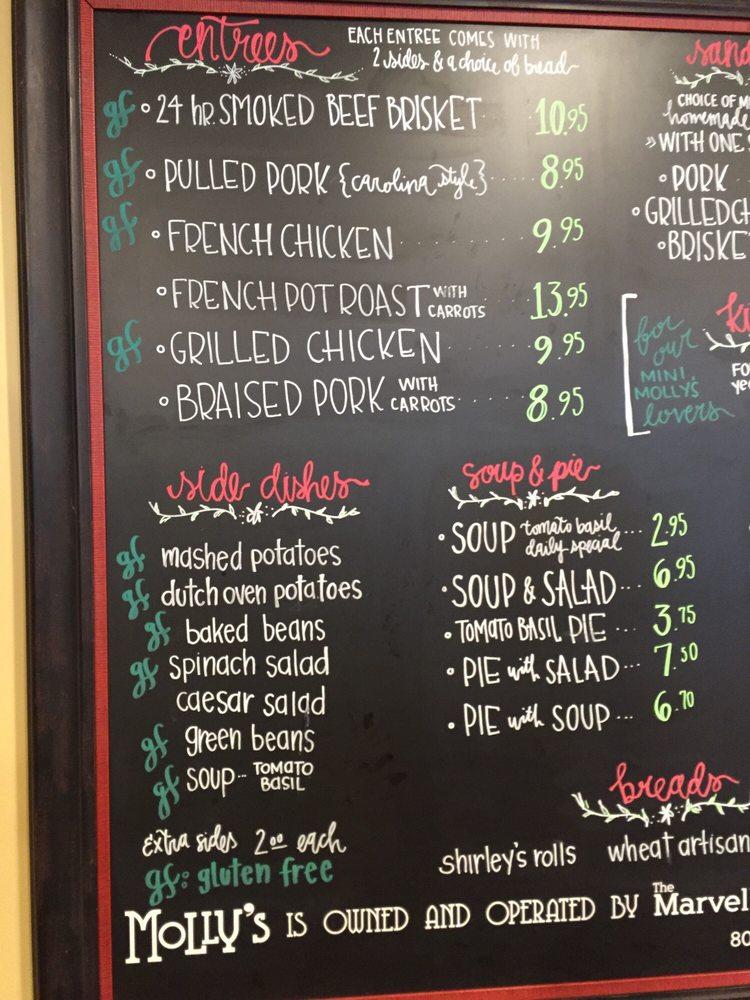 entrees EACH ENTREE COMES WITH
2 sides & a choice of bread
gf 24 hr. SMOKED BEEF BRISKET 10.95
gf PULLED PORK {carolina style} 8.95
gf FRENCH CHICKEN 9.95
FRENCH POT ROAST WITH CARROTS 13.95
gf GRILLED CHICKEN 9.95
BRAISED PORK WITH CARROTS 8.95
side dishes
gf mashed potatoes
gf dutch oven potatoes
gf baked beans
gf spinach salad
caesar salad
gf green beans
gf soup-- TOMATO BASIL
extra sides 2.00 each
gf: gluten free
soup & pie
SOUP tomato basil daily special 2.95
SOUP & SALAD 6.95
TOMATO BASIL PIE 3.75
PIE with SALAD 7.50
PIE with SOUP 6.70
CHOICE OF
homemade
» WITH ONE
PORK
GRILLED
BRISKE
for our
MINI
MOLLY'S
lovers
breads
shirley's rolls wheat artisan
MOLLY'S IS OWNED AND OPERATED BY The Marvel
80